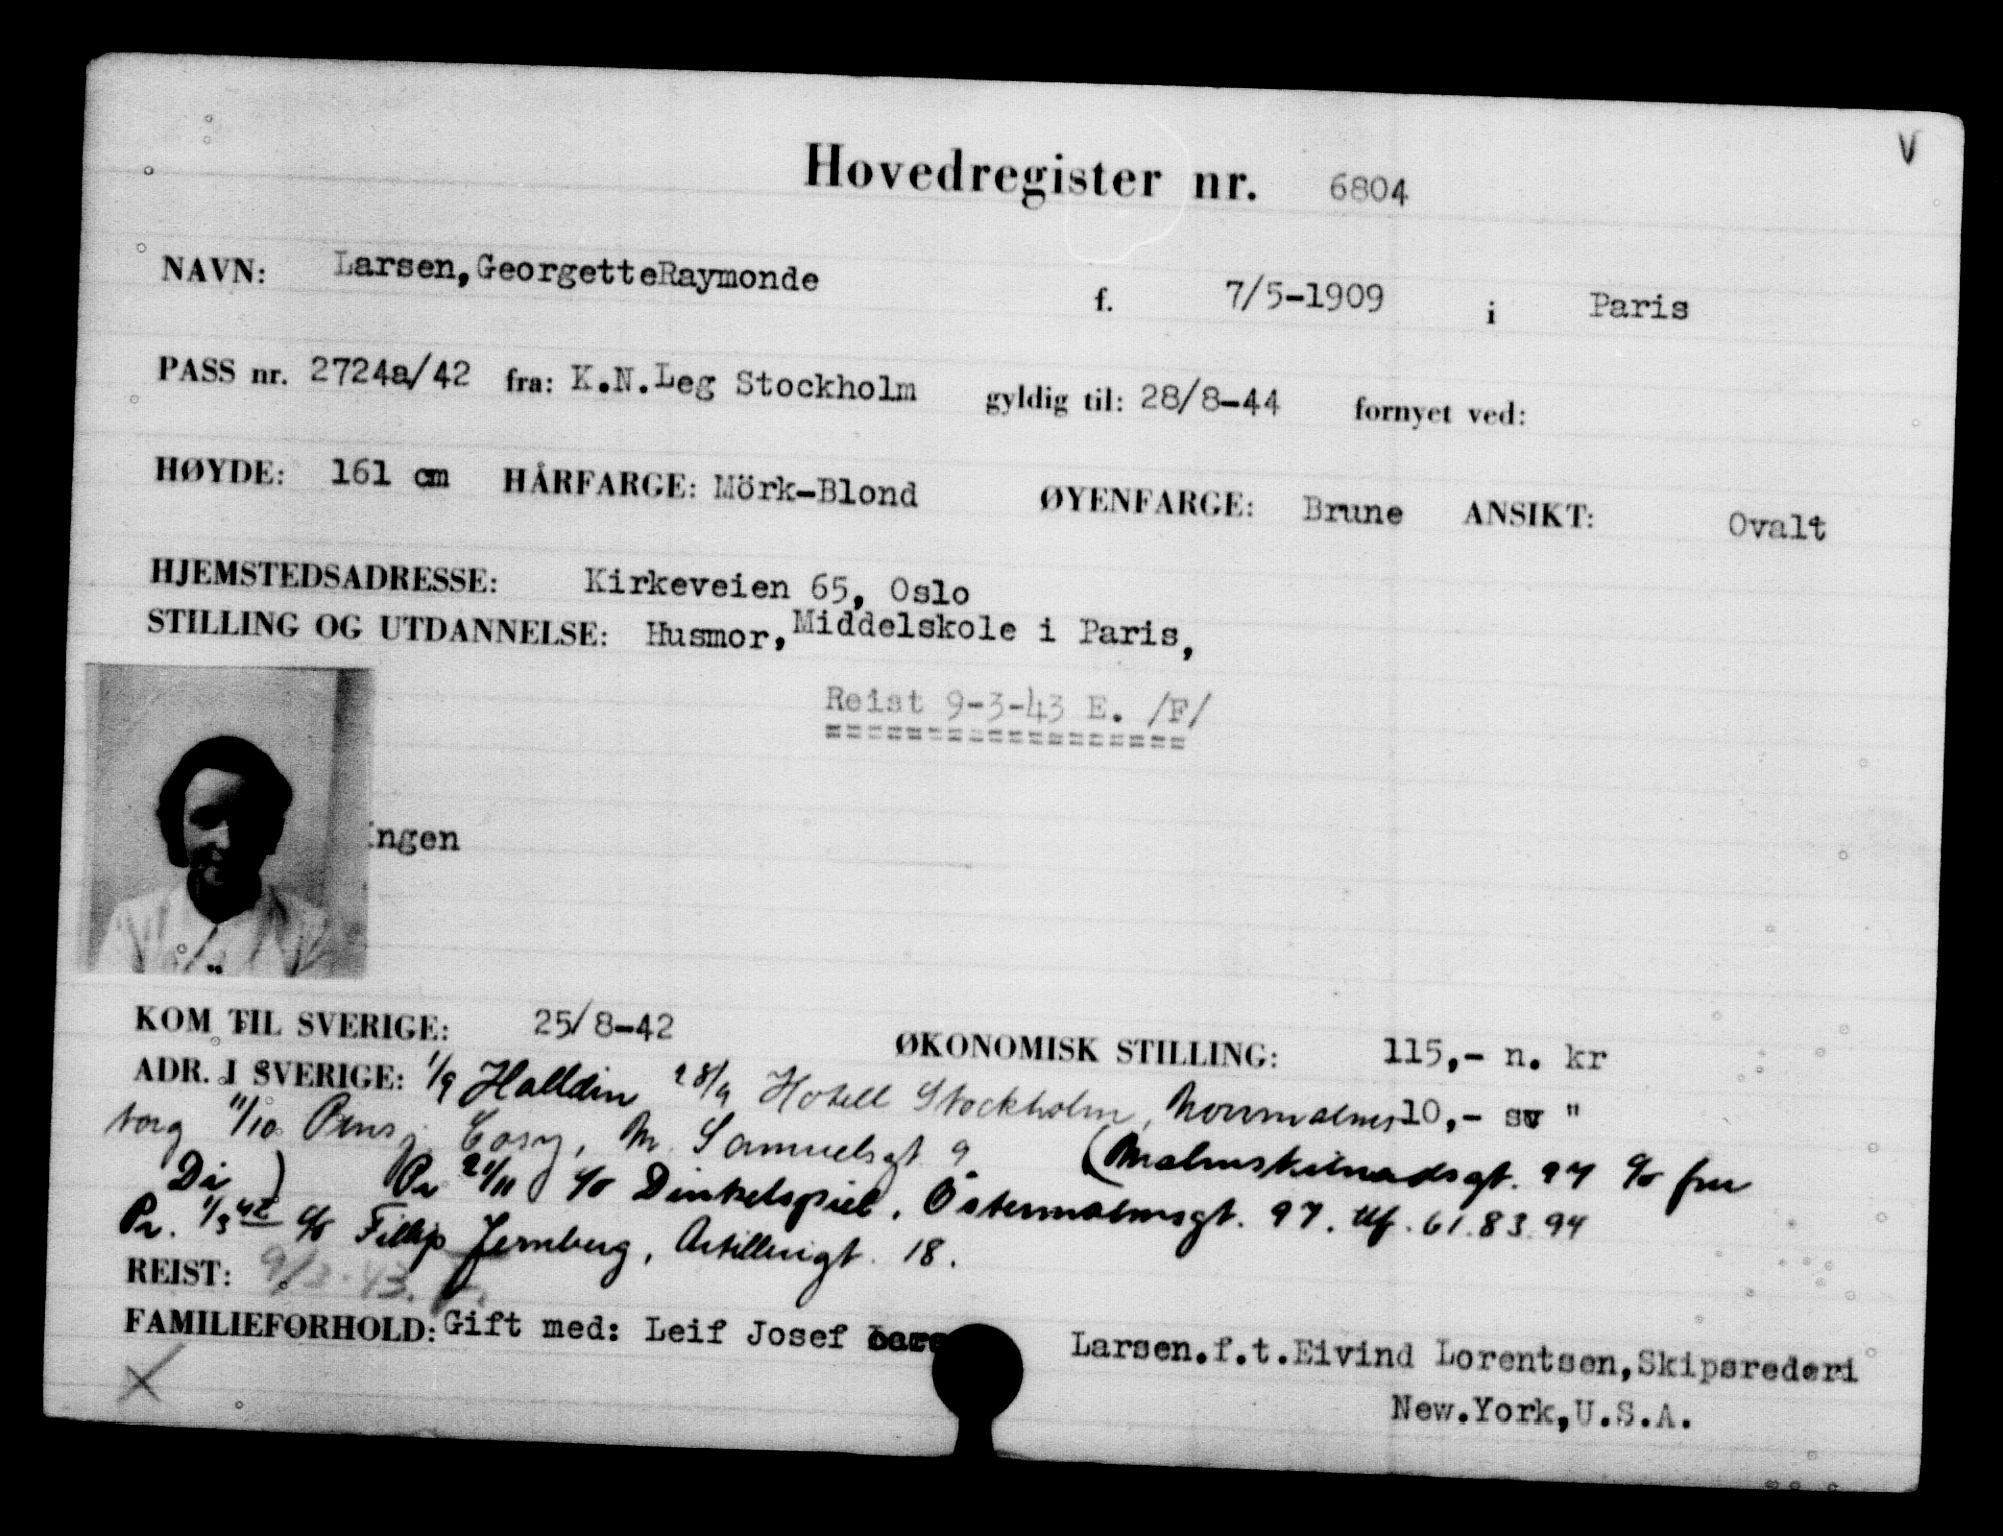 V
Hovedregister nr. 6804
NAVN: Larsen, GeorgetteRaymonde f. 7/5-1909 i Paris
PASS nr. 2724a/42 fra: K.N.Leg Stockholm gyldig til: 28/8-44 fornyet ved:
HØYDE: 161 cm HÅRFARGE: Mörk-Blond ØYENFARGE: Brune ANSIKT: Ovalt
HJEMSTEDSADRESSE: Kirkeveien 65, Oslo
STILLING OG UTDANNELSE: Husmor, Middelskole i Paris,
Reist 9-3-43 E. /F/
==================
Ingen
KOM TIL SVERIGE: 25/8-42 ØKONOMISK STILLING: 115,- n. kr
ADR. I SVERIGE: 1/9 Halldin 28/9 Hotell Stockholm, Norrmalms 10,- sv "
torg 11/10 Pensj. Cosy, M. Samuelsgt 9 (Malmskilnadsgt. 27 c/o fru
Di ) Pr 21/11 c/o Dinkelspiel, Östermalmsgt. 97. tlf. 61.83.94
Pr. 1/3 42 c/o Fillip Jernberg, Artillerigt. 18.
REIST: 9/3-43.
FAMILIEFORHOLD: Gift med: Leif Josef Larsen.f.t.Eivind Lorentsen,Skipsrederi
New.York,U.S.A.